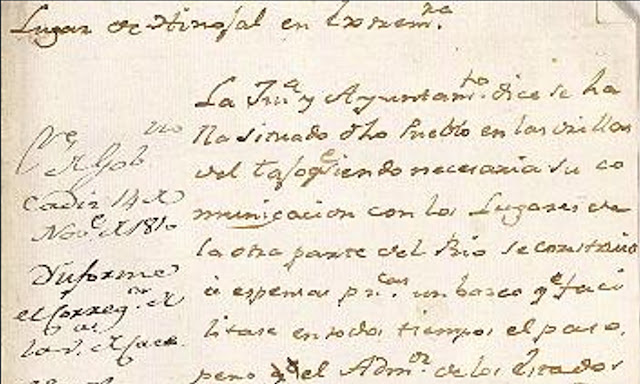 Lugar de Hinojal en Extrem.ra
La Jus.a y Ayuntam.to dice se ha
lla situado dho Pueblo en las orillas
del Tajo q.e siendo necesaria su co
municacion con los Lugares de
la otra parte del Rio se construió
á espensas pu.cas un barco q.e faci
litase en todos tiempos el paso,
pero el Adm.or de los Estados
Gob.no
Cadiz 14 de
Nov.e de 1810
Informe
el Correg.or de
las v.as de Cace